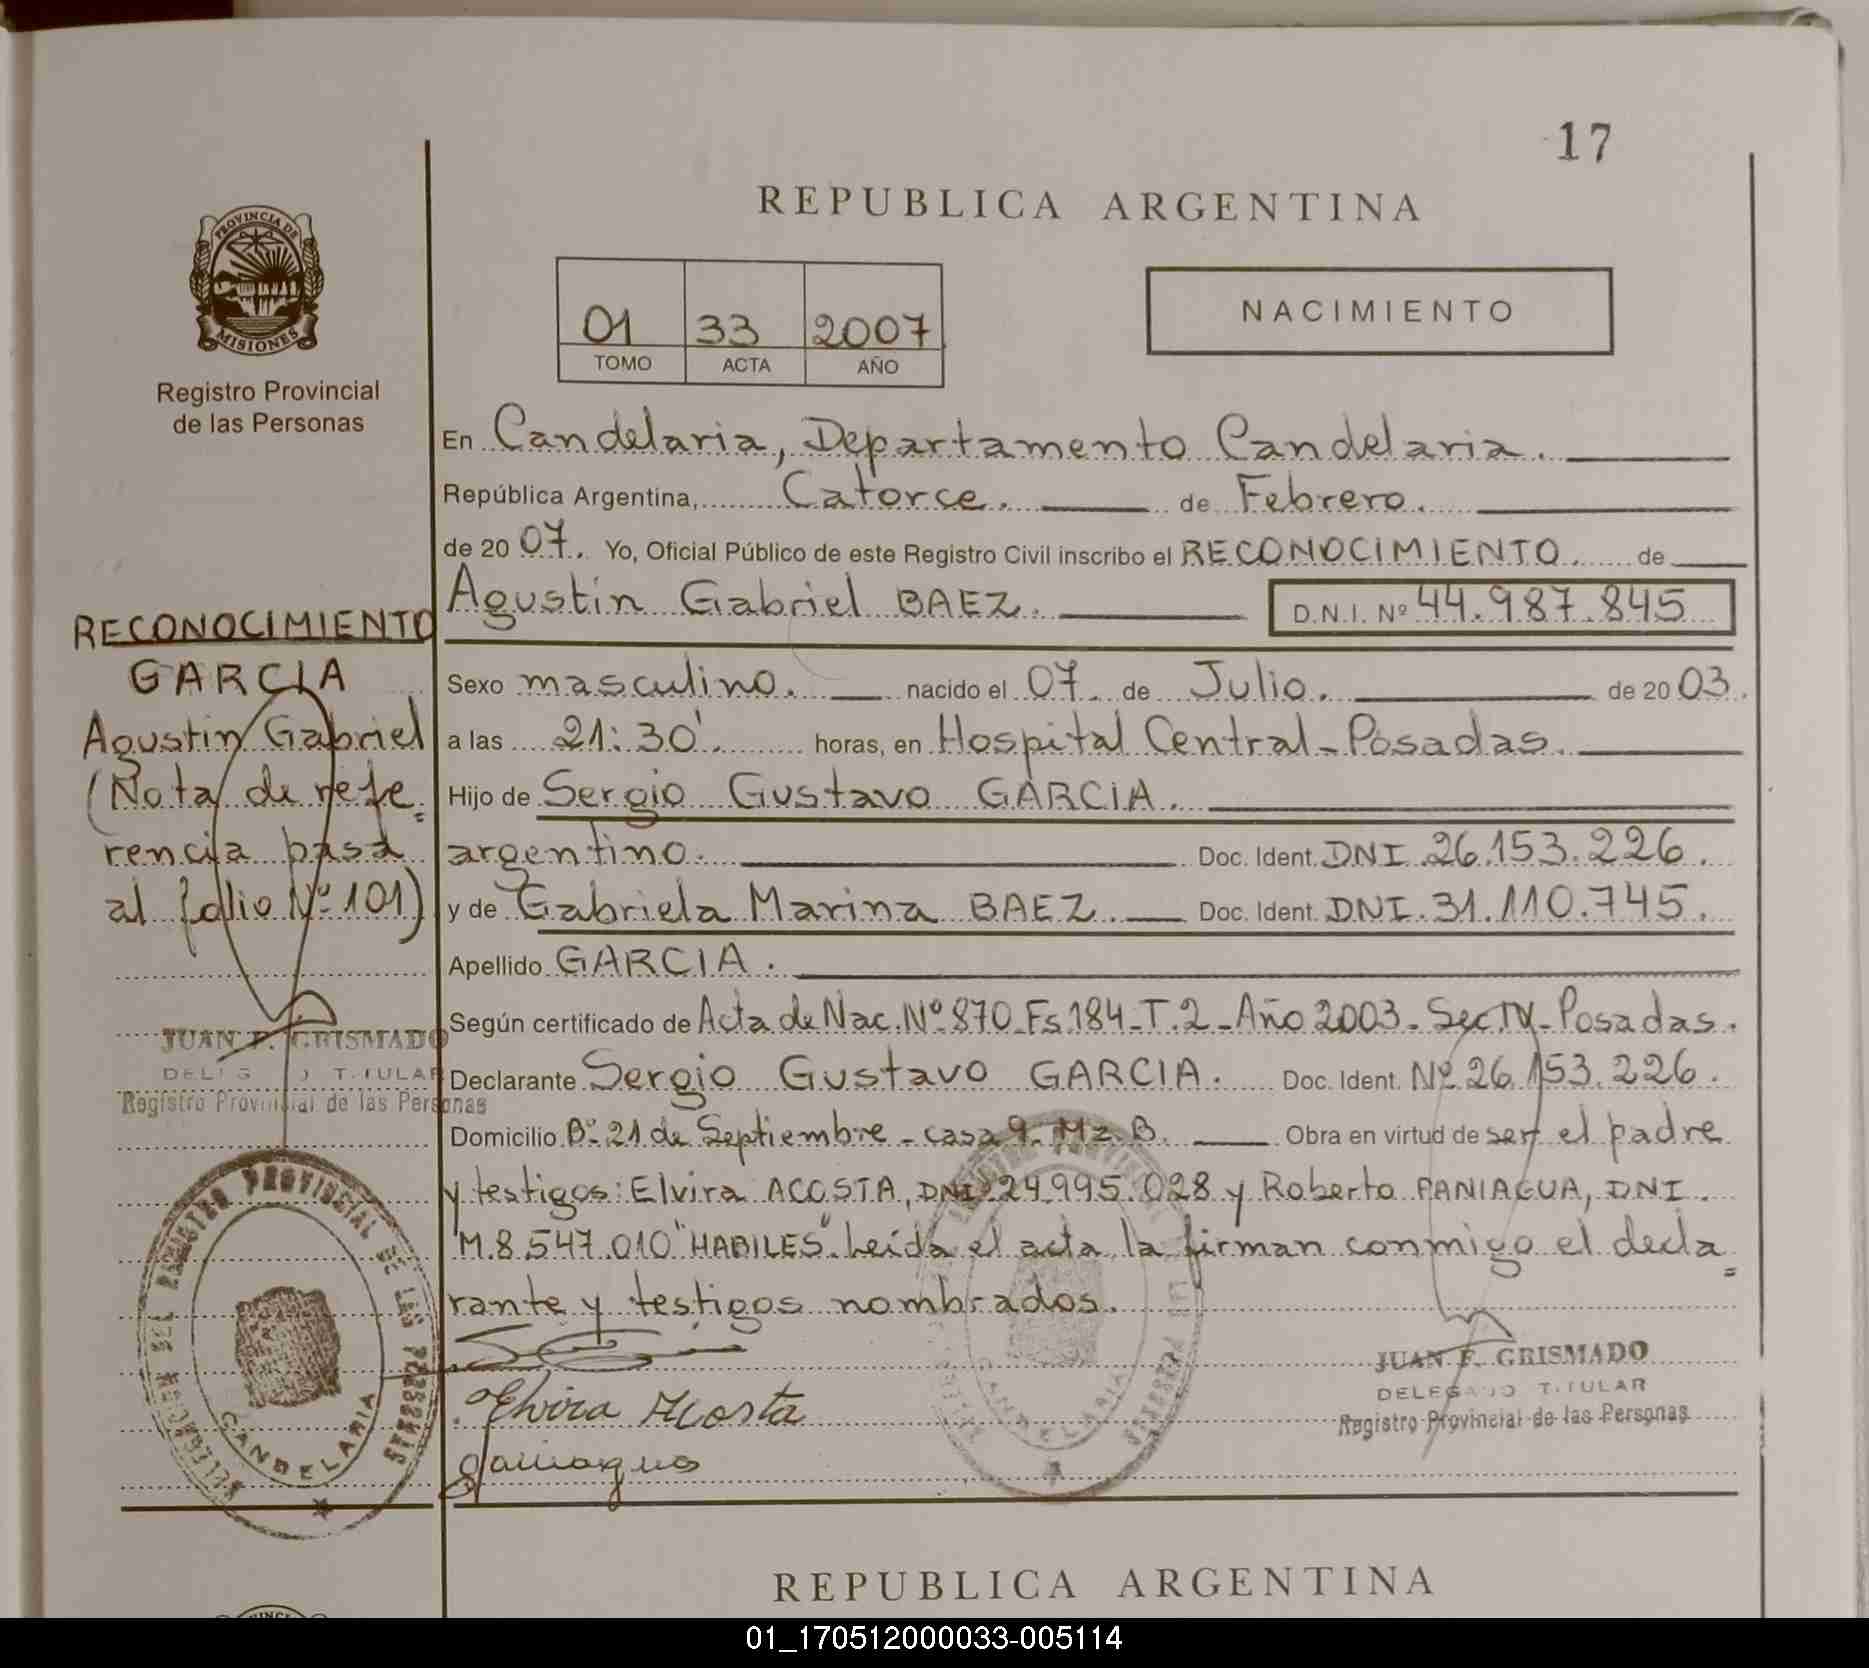 17
REPUBLICA ARGENTINA
PROVINCIA DE
MISIONES
Registro Provincial
de las Personas
01 33 2007
TOMO ACTA AÑO
NACIMIENTO
En Candelaria, Departamento Candelaria.
República Argentina, Catorce. de Febrero.
de 20 07. Yo, Oficial Público de este Registro Civil inscribo el RECONOCIMIENTO. de
Agustin Gabriel BAEZ. D.N.I. Nº 44.987.845
Sexo masculino. nacido el 07. de Julio. de 20 03.
a las 21:30'. horas, en Hospital Central - Posadas.
Hijo de Sergio Gustavo GARCIA.
argentino. Doc. Ident. DNI 26.153.226.
y de Gabriela Marina BAEZ. Doc. Ident. DNI. 31.110.745.
Apellido GARCIA.
Según certificado de Acta de Nac. Nº 870 Fs 184 - T. 2 - Año 2003 - Sec IV - Posadas.
Declarante Sergio Gustavo GARCIA. Doc. Ident. Nº 26.153.226.
Domicilio Bº 21 de Septiembre - casa 9 - Mz. B. Obra en virtud de ser el padre
y testigos: Elvira ACOSTA, DNI 24.995.028 y Roberto PANIAGUA, DNI.
M. 8.547.010 "HABILES". Leída el acta, la firman conmigo el decla=
rante y testigos nombrados.
Elvira Acosta
JUAN F. GRISMADO
DELEGADO TITULAR
Registro Provincial de las Personas
RECONOCIMIENTO
GARCIA
Agustin Gabriel
(Nota de refe=
rencia pasa
al folio Nº 101)
JUAN F. GRISMADO
DELEGADO TITULAR
Registro Provincial de las Personas
DELEGACION DEL REGISTRO PROVINCIAL DE LAS PERSONAS
CANDELARIA
CANDELARIA
REPUBLICA ARGENTINA
01_170512000033-005114